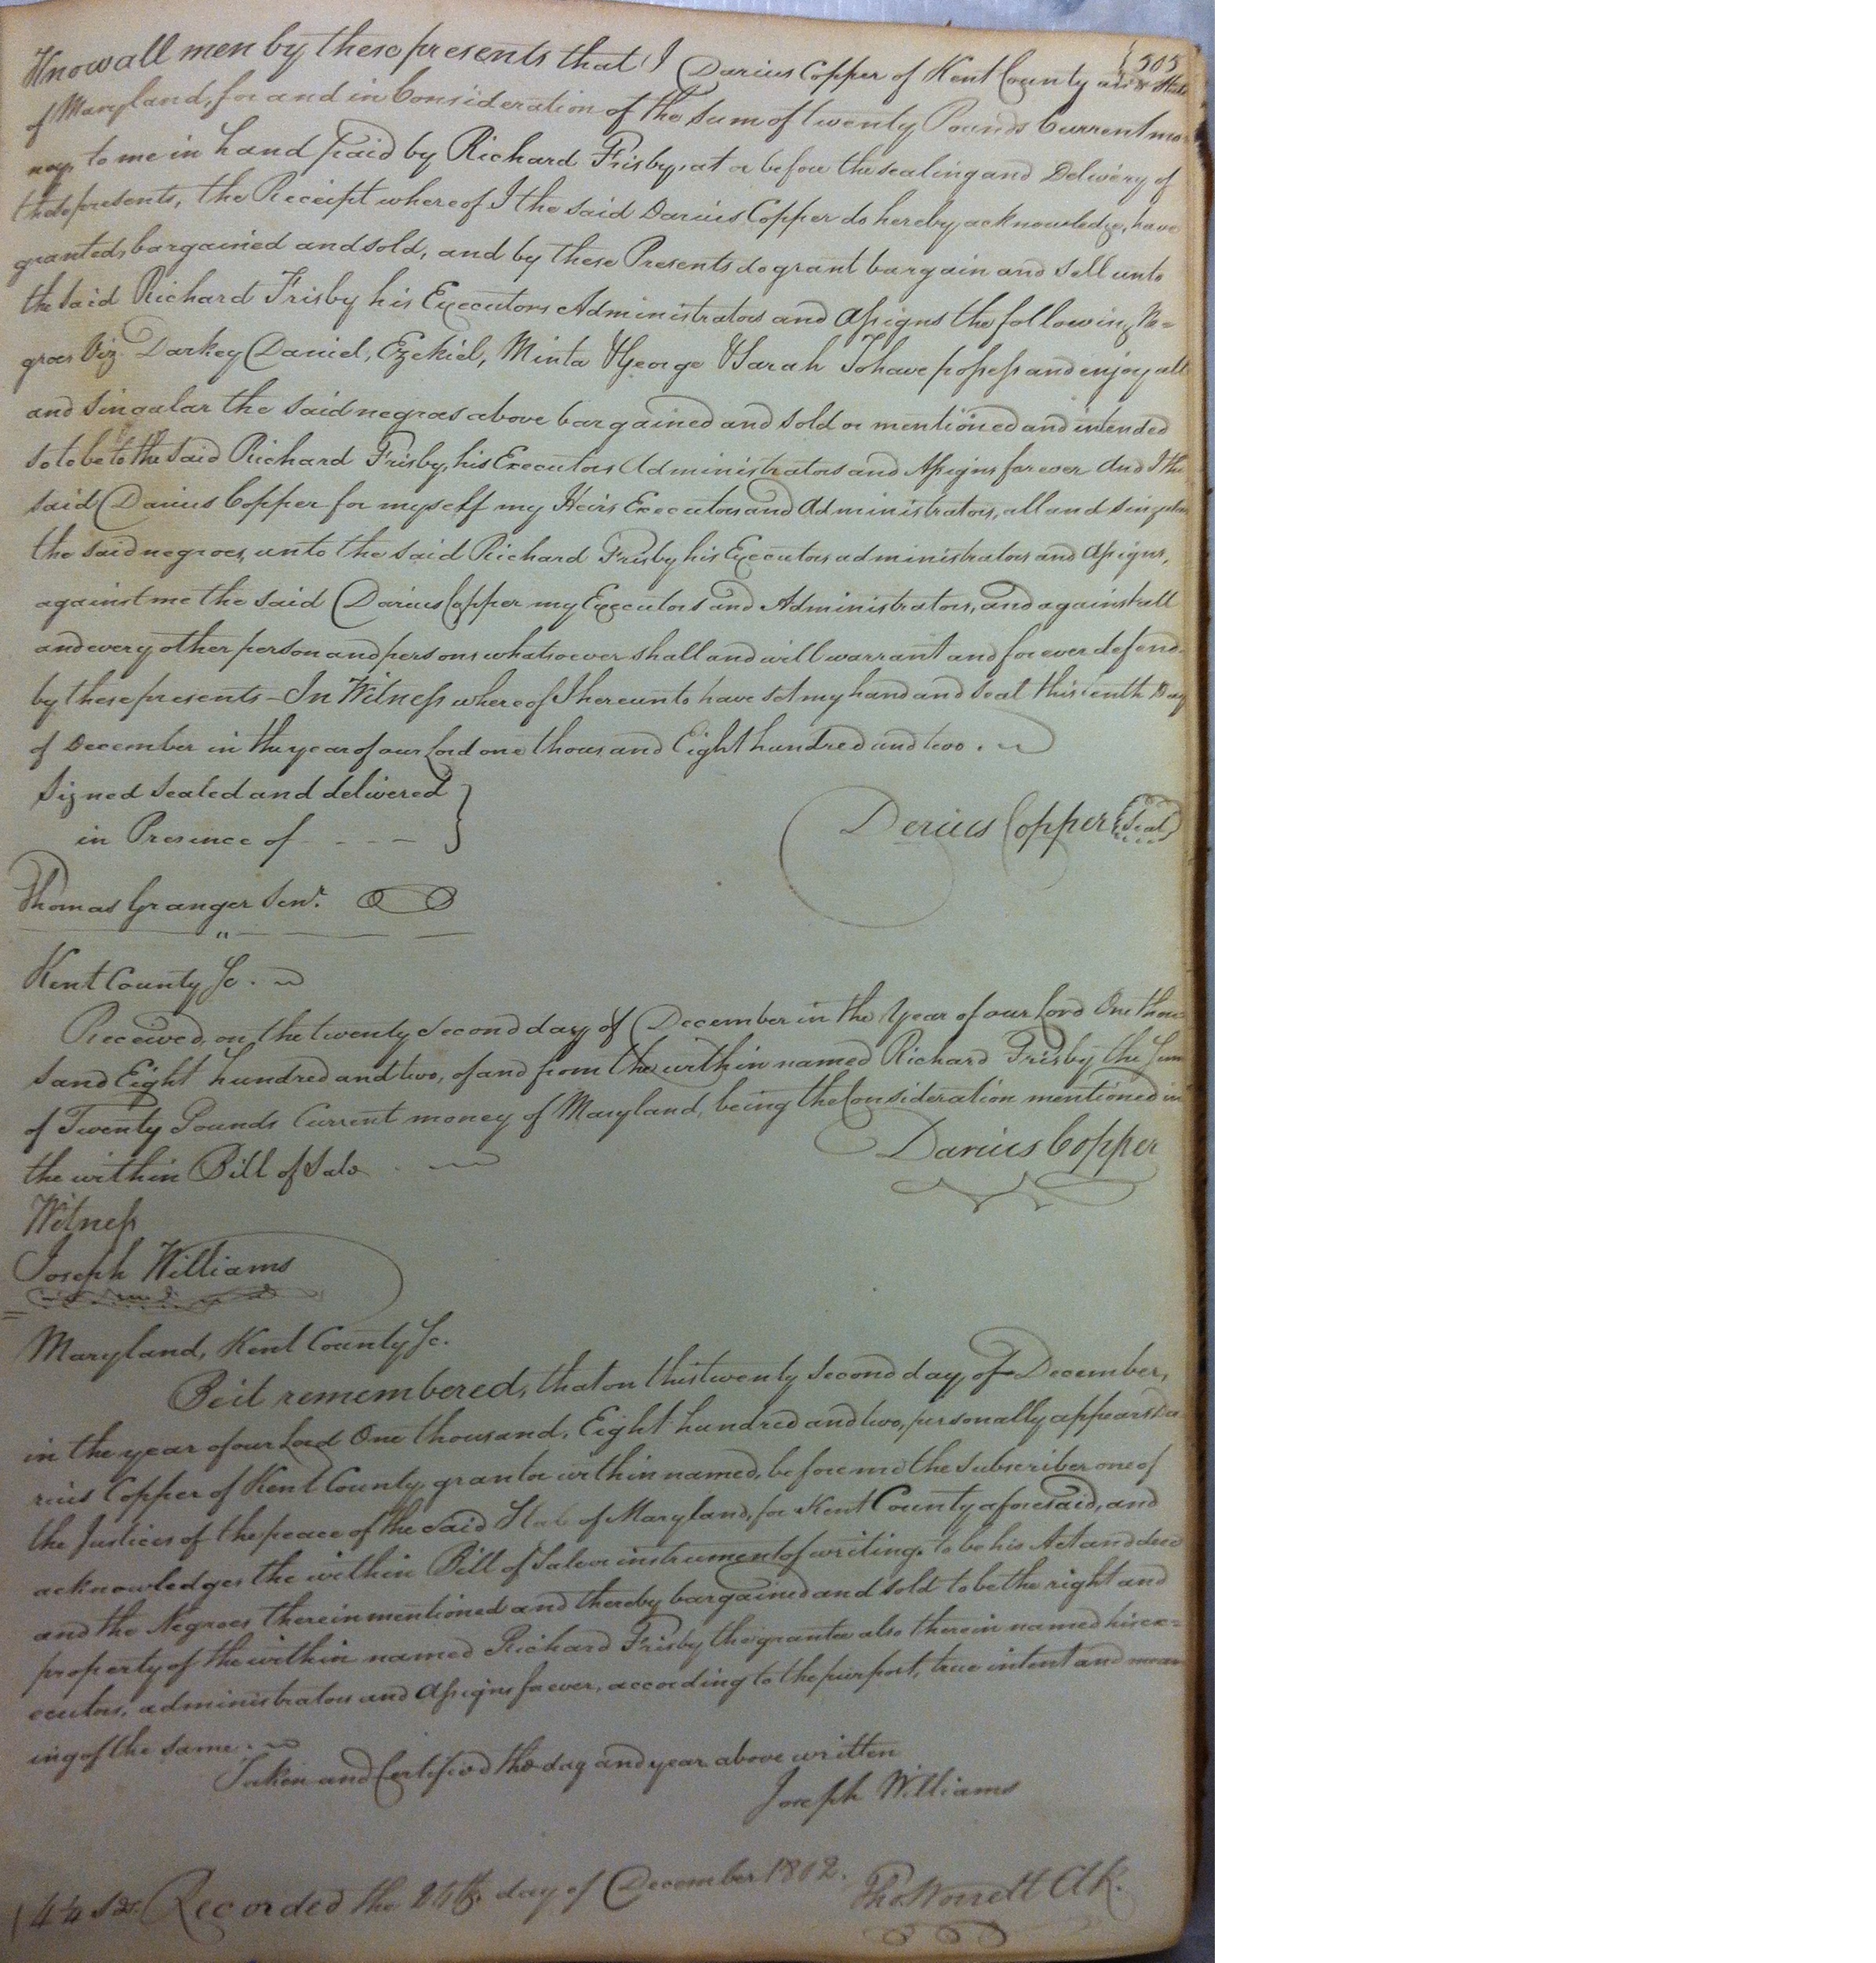 {505
Know all men by these presents that I Darius Copper of Kent County and State
of Maryland, for and in Consideration of the sum of twenty Pounds Current mo-
ney, to me in hand paid by Richard Frisby, at or before the sealing and Delivery of
these presents, the Receipt whereof I the said Darius Copper do hereby acknowledge, have
granted, bargained and sold, and by these Presents do grant bargain and sell unto
the said Richard Frisby his Executors Administrators and Assigns the following Ne=
groes Viz. Darkey Daniel, Ezekiel, Minta & George & Sarah To have possess and enjoy all
and singular the said negroes above bargained and sold or mentioned and intended
so to be to the said Richard Frisby, his Executors Administrators and Assigns for ever And I the
said Darius Copper for myself my Heirs Executors and Administrators, all and singular
the said negroes, unto the said Richard Frisby his Executors administrators and Assigns,
against me the said Darius Copper my Executors and Administrators, and against all
and every other person and persons whatsoever shall and will warrant and for ever defend
by these presents - In Witness whereof I hereunto have set my hand and seal this tenth Day
of December in the year of our Lord one thousand Eight hundred and two.
Signed sealed and delivered }
in Presence of - - - -
Derius Copper {Seal}
Thomas Granger Senr.
Kent County Sc.
Received, on the twenty second day of December in the Year of our Lord One thou
sand Eight hundred and two, of and from the within named Richard Frisby the Sum
of Twenty Pounds Current money of Maryland, being the Consideration mentioned in
the within Bill of Sale
Darius Copper
Witness
Joseph Williams
Maryland, Kent County Sc.
Be it remembered, that on this twenty second day, of December,
in the year of our Lord One thousand, Eight hundred and two, personally appears Da
rius Copper of Kent County, grantor within named, before me the subscriber one of
the Justices of the peace of the said State of Maryland, for Kent County aforesaid, and
acknowledges the within Bill of Sale or instrument of writing, to be his Act and deed
and the Negroes therein mentioned and thereby bargained and sold to be the right and
property of the within named Richard Frisby the grantee also therein named his ex=
ecutors, administrators and Assigns for ever, according to the purport, true intent and mean
ing of the same.
Taken and Certified the day and year above written
Joseph Williams
Recorded the 24th. day of December 1802.
Tho Worrell Clk.